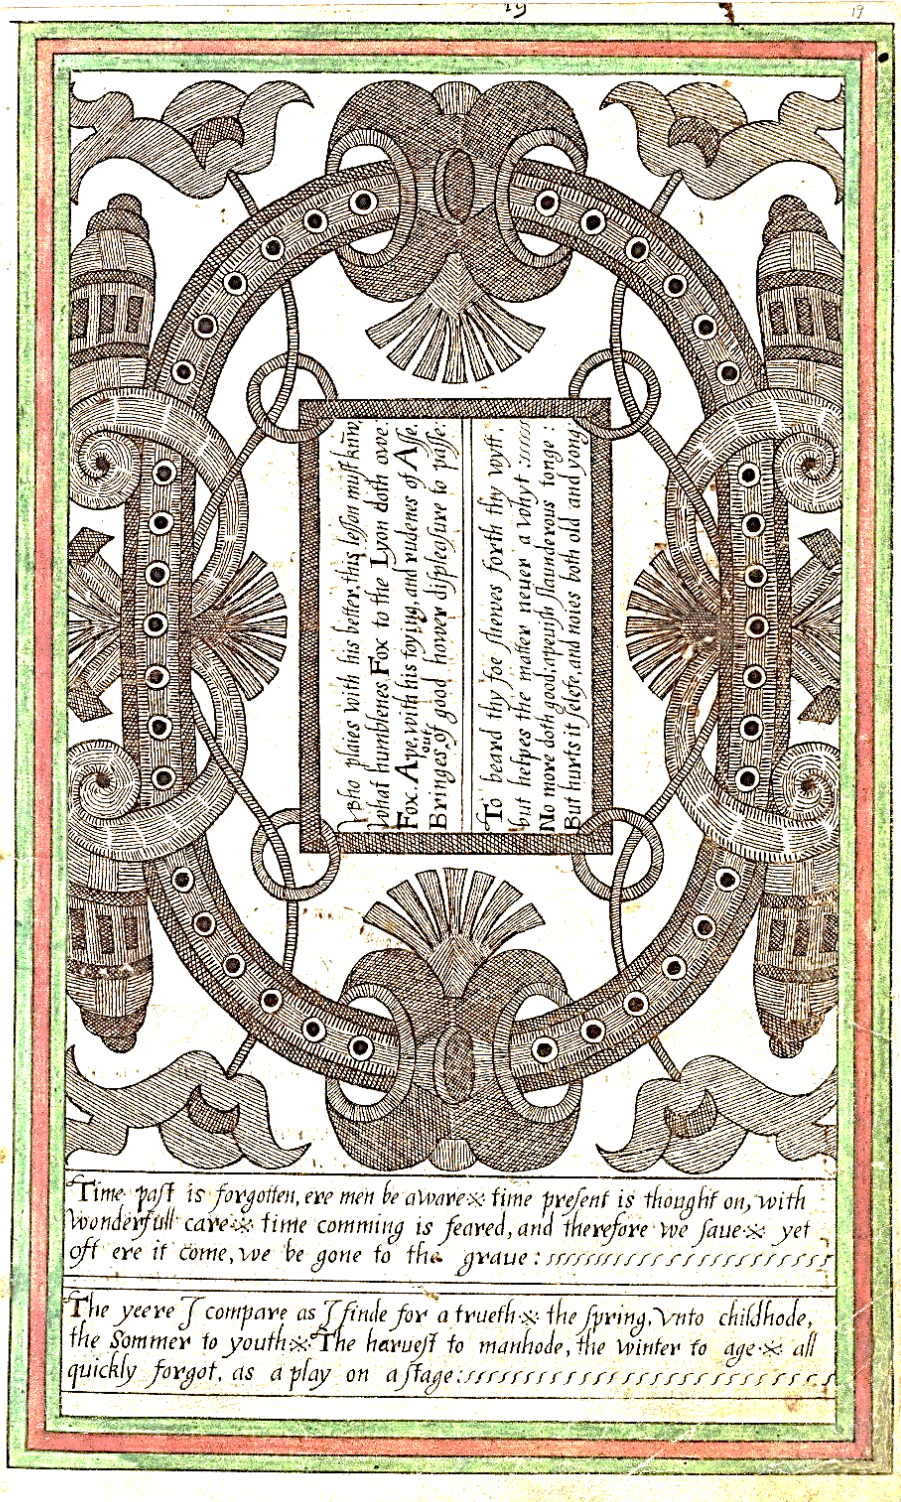 19
19
Who plaies with his better, this leſſon muſt
What humblenes Fox to the Lyon doth owe.
Fox, Ape, with his toying, and rudenes of Aſſe,
out
Bringes, of good hower diſpleaſure to paſſe:
To beard thy foe ſhewes forth thy wytt,
but helpes the matter neuer a whyt:
No more doth good, apeuiſh ſlaunderous tonge:
But hurts it ſelefe, and noies both old and yong
Time paſt is forgotten, ere men be aware※ time preſent is thought on, with
wonderfull care※ time comming is feared, and therefore we ſaue※ yet
oft ere it come, we be gone to the graue:
The yeere I compare as I finde for a trueth※ the ſpring, vnto childhode,
the Sommer to youth※ The harueſt to manhode, the winter to age※ all
quickly forgot, as a play on a ſtage: